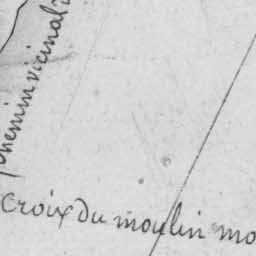 chemin vicinal
Croix du moulin mo